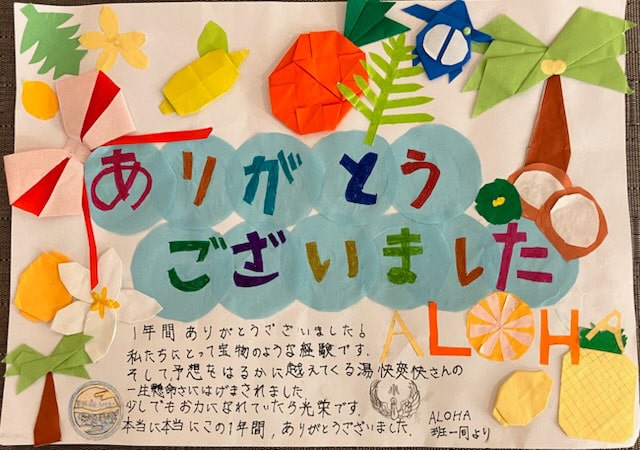 ありがとう
ございました
ALOHA
1年間 ありがとうございました!
私たちにとって宝物のような経験です.
そして,予想をはるかに越えてくる湯快爽快さんの
一生懸命さにはげまされました.
少しでもお力になれていたら光栄です.
本当に本当にこの1年間,ありがとうございました.
ALOHA
班一同より